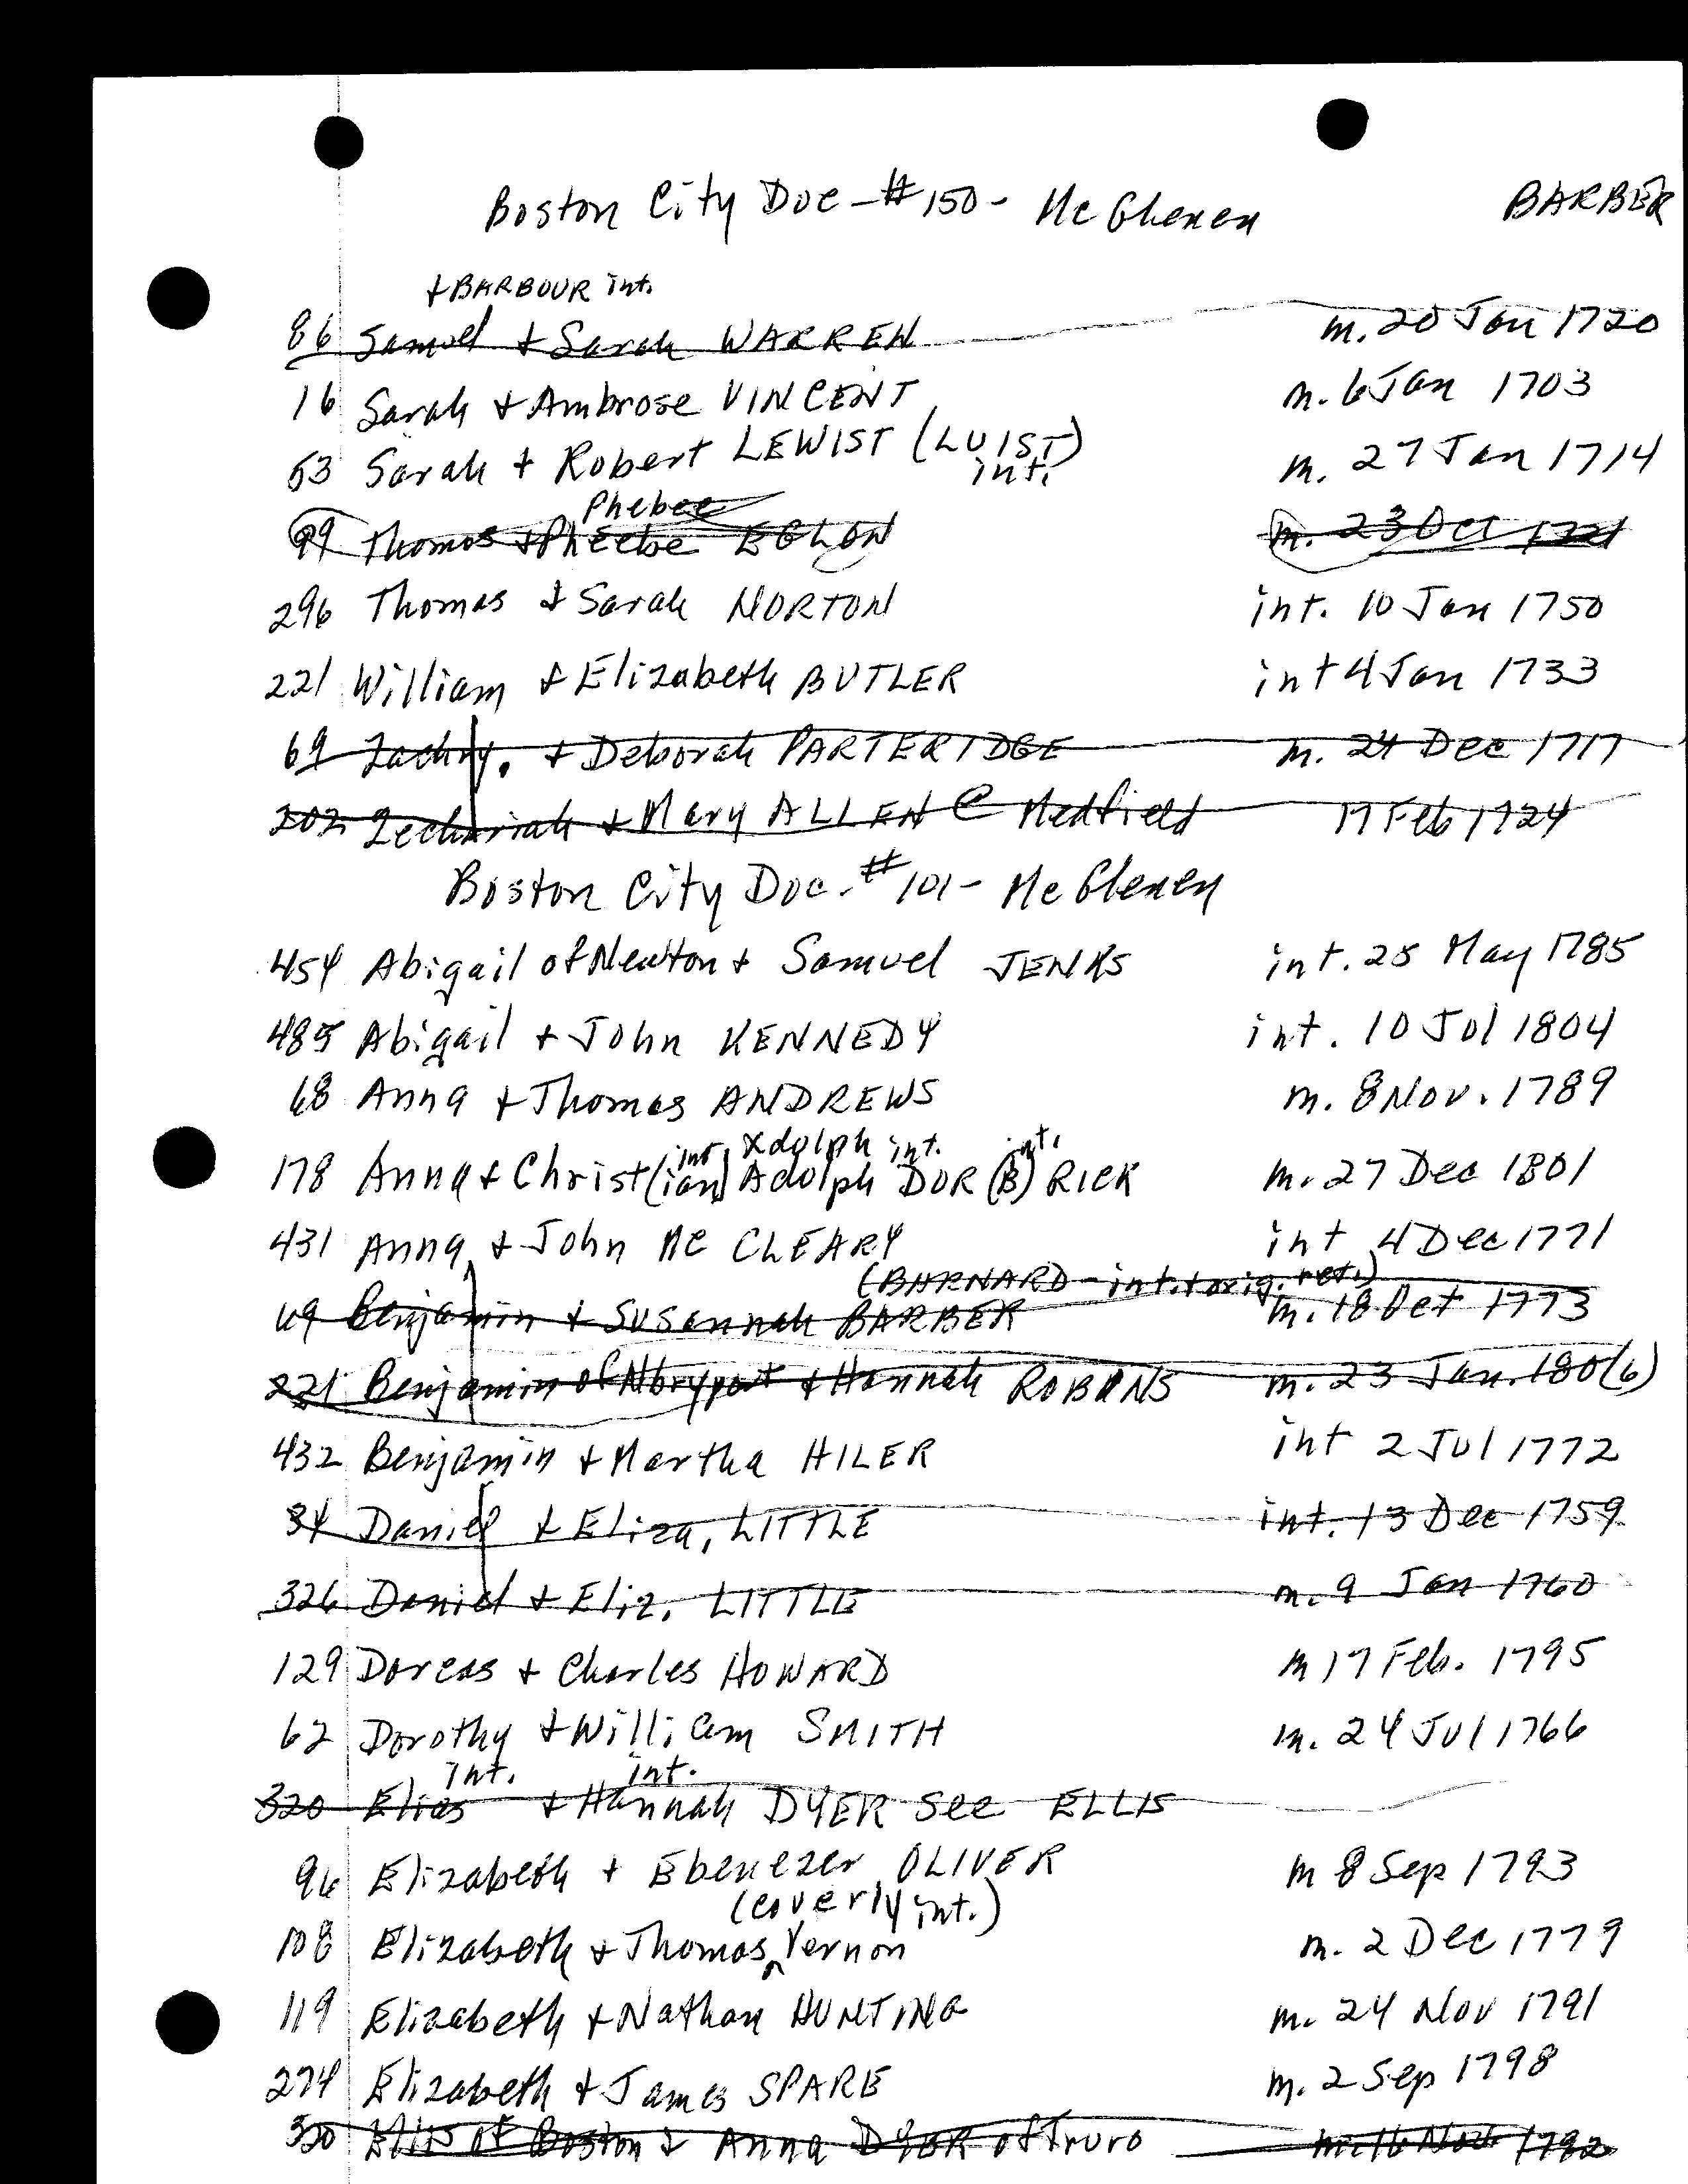 Boston City Doc - #150 - McGlenen BARBER
+ BARBOUR int.
86 Samuel + Sarah WARREN m. 20 Jan 1720
16 Sarah + Ambrose VINCENT m. 6 Jan 1703
53 Sarah + Robert LEWIST (LUIST) m. 27 Jan 1714
int.
Phebee
99 Thomas + Pheebe EGLON m. 23 Oct 1721
296 Thomas + Sarah NORTON int. 10 Jan 1750
221 William + Elizabeth BUTLER int 4 Jan 1733
69 Zachry. + Deborah PARTERIDGE m. 24 Dec 1717
202 Zechariah + Mary ALLEN @ Medfield 17 Feb 1724
Boston City Doc. #101 - McGlenen
454 Abigail of Newton + Samuel JENKS int. 25 May 1785
485 Abigail + John KENNEDY int. 10 Jul 1804
68 Anna + Thomas ANDREWS m. 8 Nov. 1789
int Xdolph int. int.
178 Anna + Christ(ian) Adolph DOR(B)RICK m. 27 Dec 1801
431 Anna + John McCLEARY int 4 Dec 1771
(BARNARD - int. + orig. ret.)
49 Benjamin + Susannah BARBER m. 18 Oct 1773
221 Benjamin of Nbryport + Hannah ROBINS m. 23 Jan. 180(6)
432 Benjamin + Martha HILER int 2 Jul 1772
34 Daniel + Eliza. LITTLE int. 13 Dec 1759
326 Daniel + Eliz. LITTLE m. 9 Jan 1760
129 Dorcas + Charles HOWARD m 17 Feb. 1795
62 Dorothy + William SMITH m. 24 Jul 1766
int. int.
320 Elias + Hannah DYER See ELLIS
96 Elizabeth + Ebenezer OLIVER m 8 Sep 1793
(Coverly int.)
108 Elizabeth + Thomas ^ Vernon m. 2 Dec 1779
119 Elizabeth + Nathan HUNTING m. 24 Nov 1791
274 Elizabeth + James SPARE m. 2 Sep 1798
320 Ellis of Boston + Anna DYER of Truro m. 16 Nov 1782